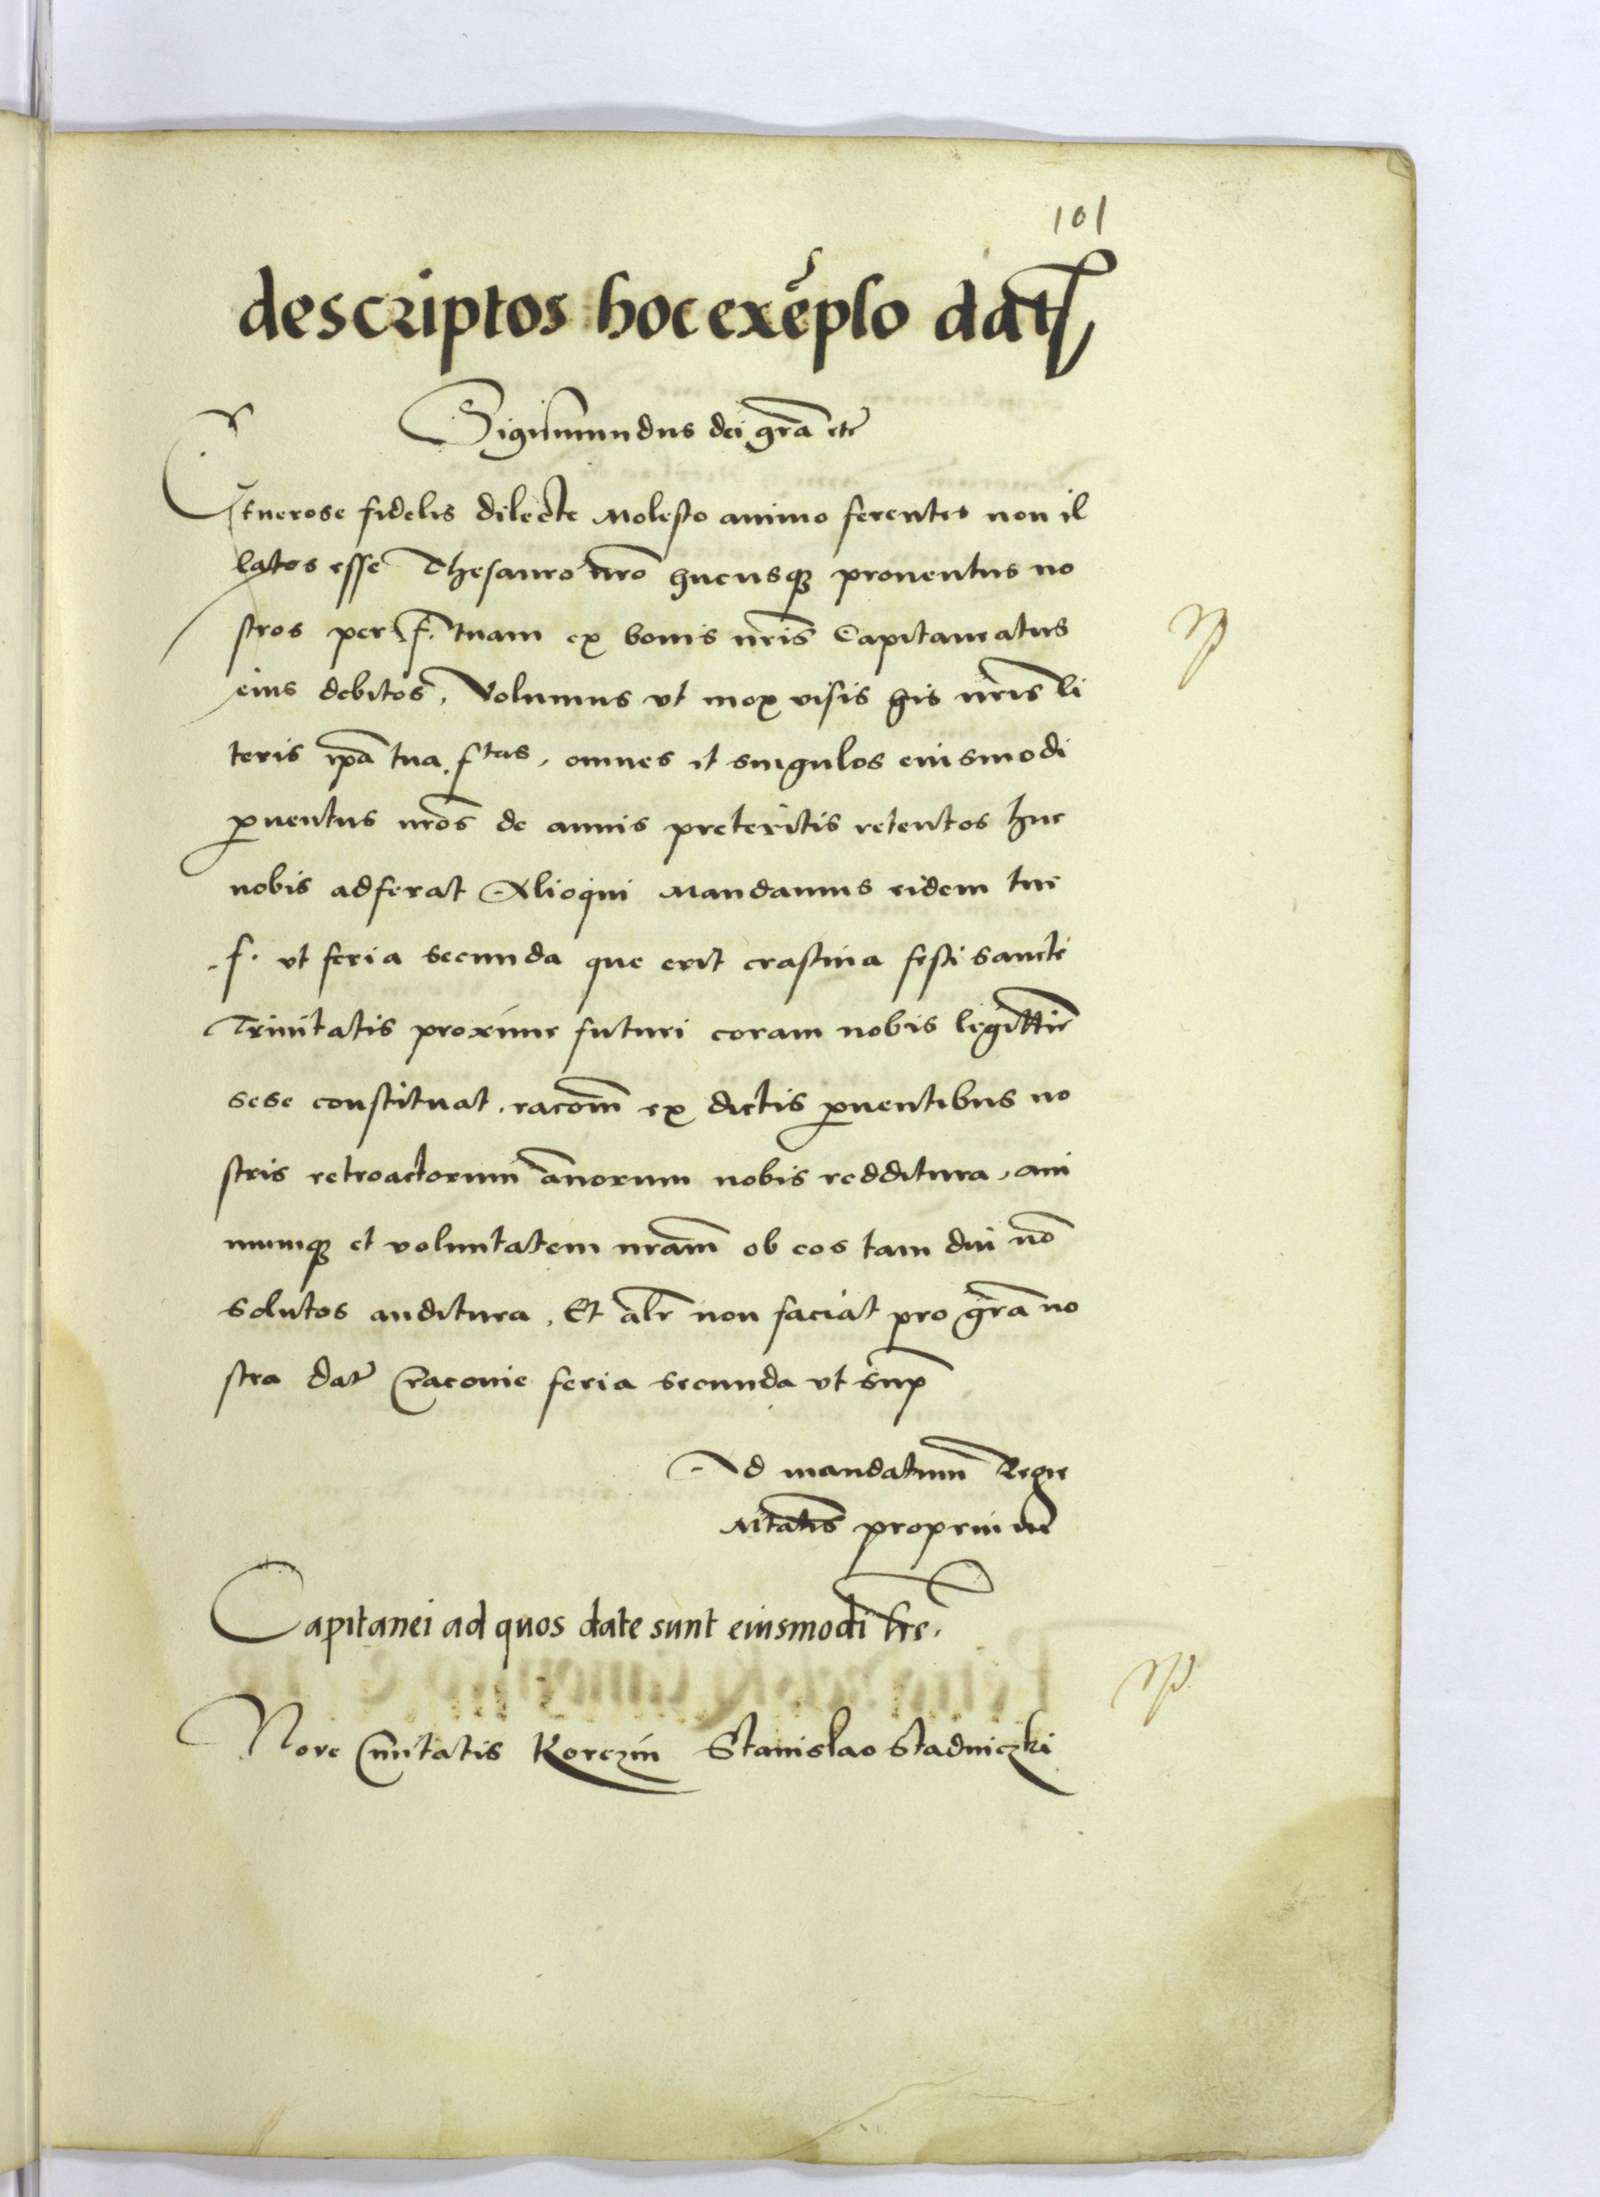 101
descriptos hoc exẽplo dat
Sigismundus dei gr̃a etc̃
Generose fidelis dilecte Molesto animo ferentes non il
latos esse Thesauro nr̃o hucusq; prouentus no
stros per f. tuam ex bonis nr̃is Capitaneatus
eius debitos, Volumus vt mox visis his nr̃is li
teris ip̃a tua f^tas, omnes et singulos eiusmodi
ꝓuentus nr̃os de annis preteritis retentos huc
nobis adferat Alioqui Mandamus eidem tue
f. vt feria secunda que erit crastina festi sancte
Trinitatis proxime futuri coram nobis legittie
sese constituat, racõm ex dictis ꝓuentibus no
stris retroactorum ãnorum nobis redditura, ani
mumq; et voluntatem nr̃am ob eos tam diu nõ
solutos auditura, Et alr̃ non faciat pro gr̃a no
stra dat̃ Cracouie feria secunda vt sup̃
Ad mandatum Regie
Mtatis proprium
Capitanei ad quos date sunt eiusmodi lr̃e.
Nove Ciuitatis Korczin Stanislao Stadniczki